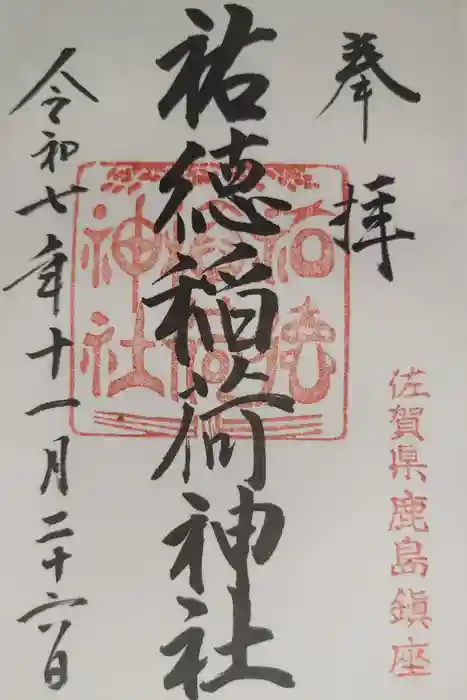 奉拝
佐賀県鹿島鎮座
祐徳稲荷神社
祐徳
稲荷
神社
令和七年十一月二十六日